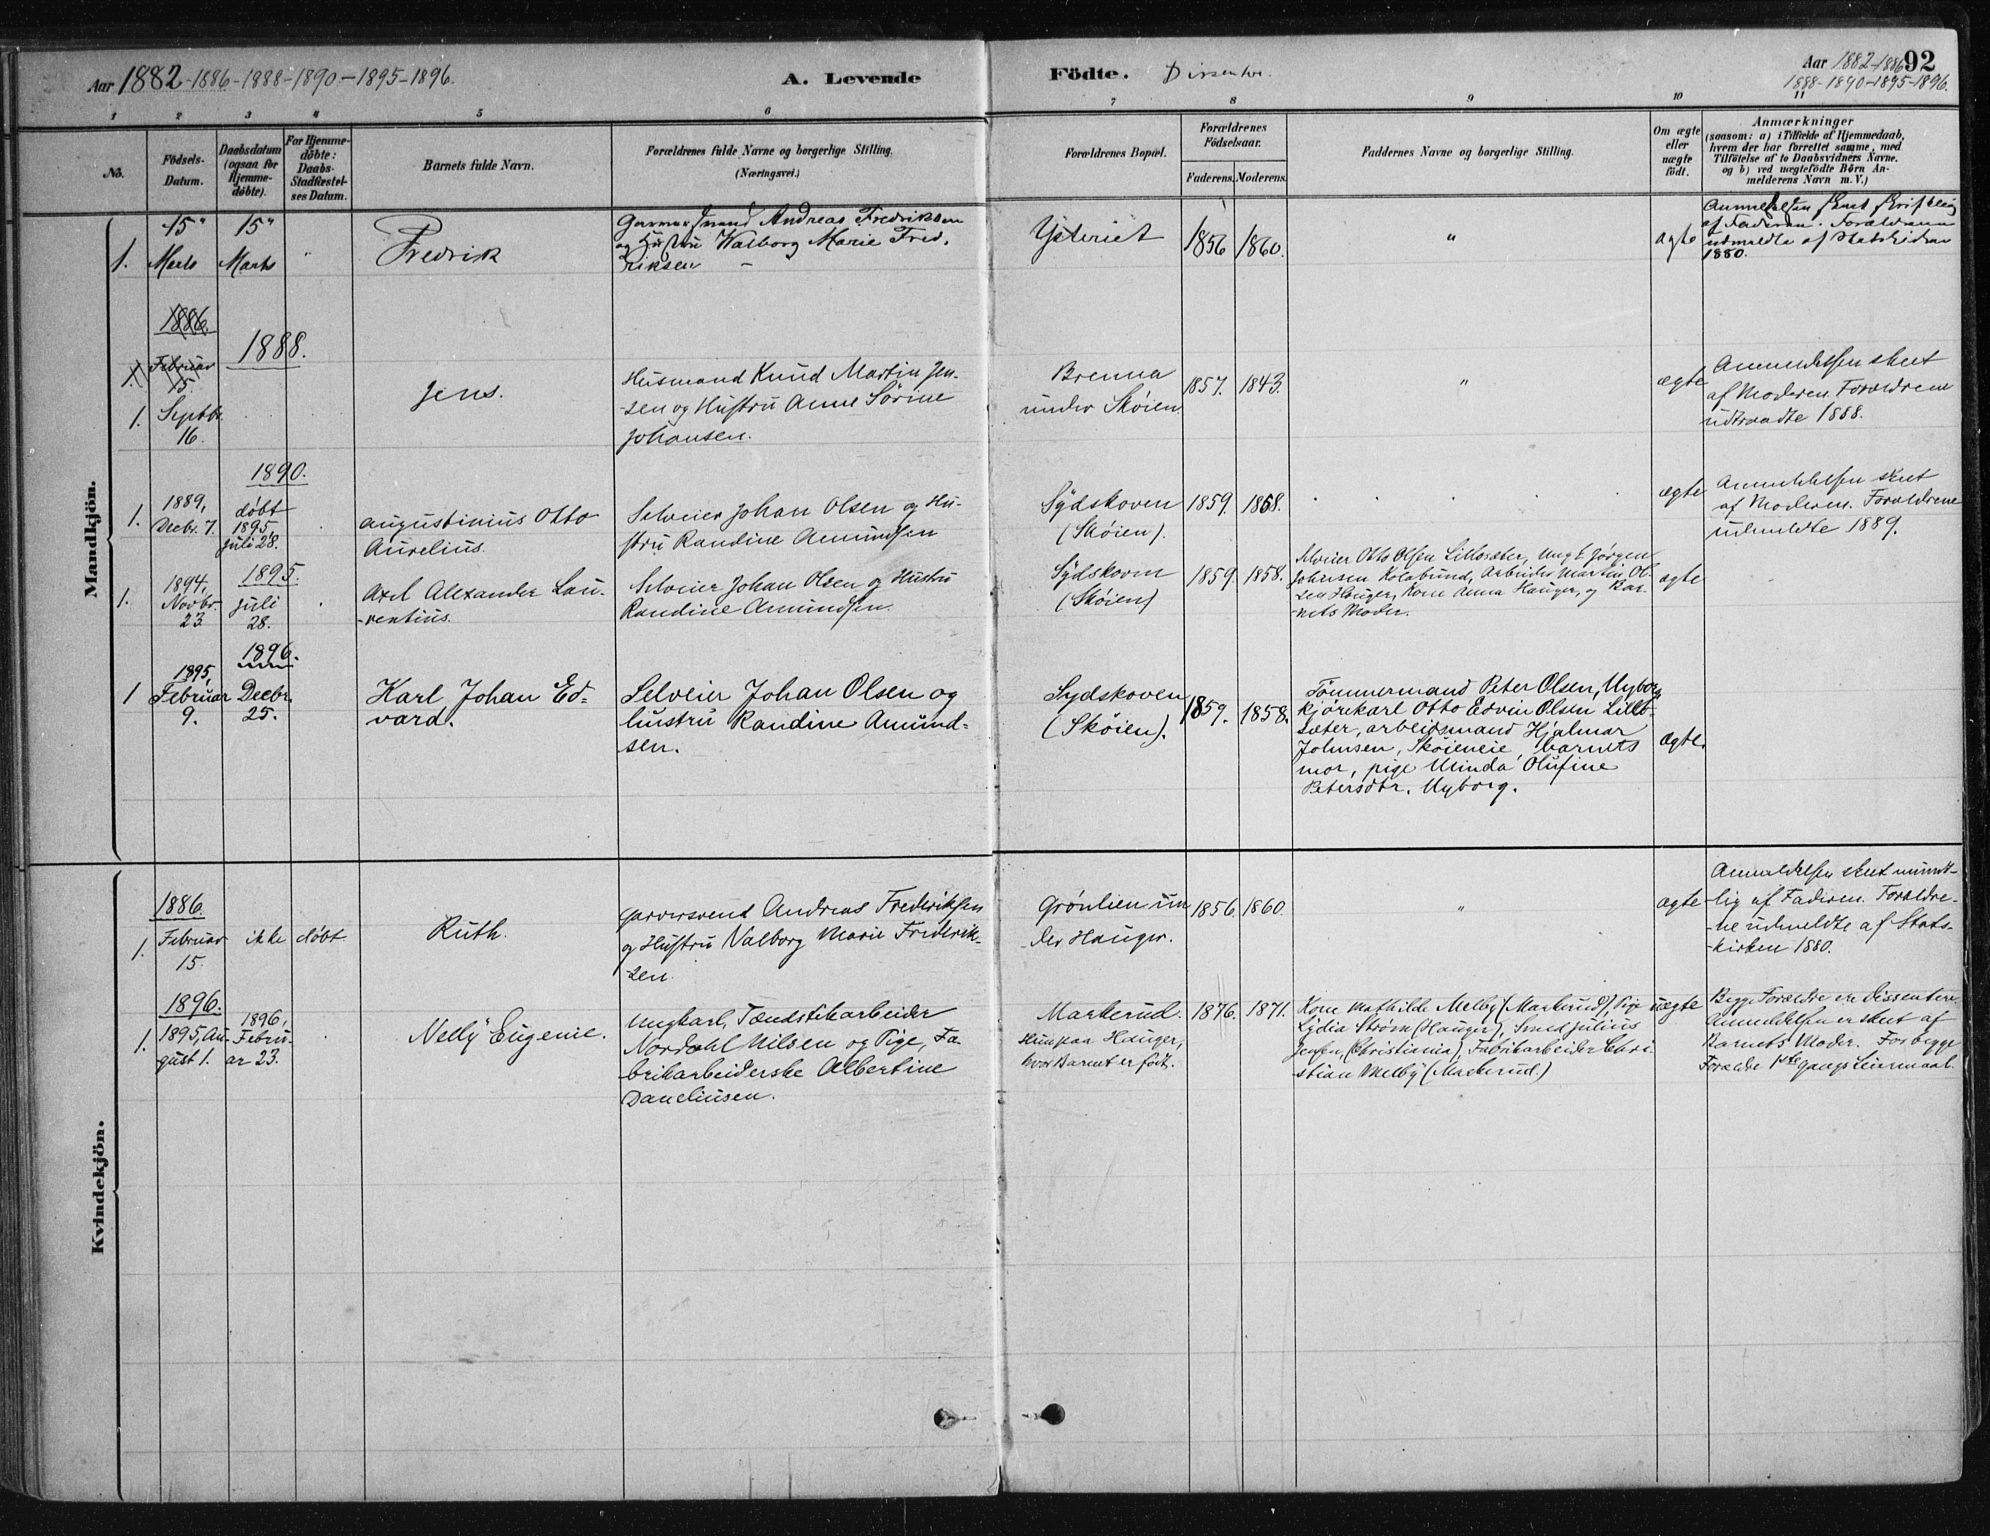 Aar 1882-1886-1888-1890-1895-1896.
A. Levende
Födte. Dissentre.
Aar 1882-1886 92
1888-1890-1895-1896.
1 2 3 4 5 6 7 8 9 10 11
No.
Födsels-
Datum.
Daabsdatum
(ogsaa for
Hjemme-
döbte).
For Hjemme-
döbte:
Daabs-
Stadfæstel-
ses Datum.
Barnets fulde Navn.
Forældrenes fulde Navne og borgerlige Stilling.
(Næringsvei.)
Forældrenes Bopæl.
Forældrenes
Födselsaar.
Faderens. Moderens.
Faddernes Navne og borgerlige Stilling.
Om ægte
eller
uægte
födt.
Anmærkninger
(saasom: a) i Tilfælde af Hjemmedaab,
hvem der har forrettet samme, med
Tilföielse af to Daabsvidners Navne.
og b) ved uægtefödte Börn An-
melderens Navn m. V.)
Mandkjön.
1. 15" Marts
15" Marts
"
Fredrik
Andreas Fredriksen
og Hustru Walborg Marie Fred.
riksen
Ysteriet
1856 1860.
"
ægte
Anmeldelsen skeet skriftlig
af Faderen. Forældrene
udmeldte af Statskirken
1880.
1886.
1888.
1. Februar
15
1. Septbr.
16.
Jens.
Husmand Knud Martin Jen-
sen og Hustru Anne Sörine
Johansen.
Brenna
under Skøien.
1857. 1843.
"
ægte
Anmeldelsen skeet
af Moderen. Forældrene
udtraadte 1888.
1890.
1. 1889,
Decbr. 7.
døbt
1895,
Juli 28.
Augustinius Otto
Aurelius.
Selveier Johan Olsen og Hu-
stru Randine Amundsen
Sydskoven
(Skøien).
1859. 1858.
ægte
Anmeldelsen skeet
af Moderen. Forældrene
udmeldte 1889.
1895.
1. 1894,
Novbr.
23
Juli
28.
Axel Alexander Lau-
rentius.
Selveier Johan Olsen og Hustru
Randine Amundsen.
Sydskoven
(Skøien)
1859. 1858.
Selveier Otto Olsen Lillesæter, Ungk. Jørgen
Johansen Kolabund, Arbeider Martin Ol-
sen Hauger, Kone Anna Hauger, og Bar-
nets Moder.
ægte
1896.
1 1895,
Februar
9.
Decbr.
25.
Karl Johan Ed-
vard.
Selveier Johan Olsen og
hustru Randine Amund-
sen.
Sydskoven
(Skøien).
1859. 1858.
Tømmermand Peter Olsen, Nyborg,
kjørekarl Otto Edvin Olsen Lille-
sæter, arbeidsmand Hjalmar
Johnsen, Skøieneie, barnets
mor, pige Minda Olufine
Petersdtr. Nyborg.
ægte.
Kvindekjön.
1886.
1. Februar
15.
ikke døbt
Ruth.
Garversvend Andreas Frederiksen
og Hustru Valborg Marie Frederik-
sen.
Grönlien un
der Hauger.
1856. 1860.
"
ægte
Anmeldelsen skeet mundt-
lig af Faderen. Forældre-
ne udmeldte af Stats-
kirken 1880.
1896.
1. 1895, Au-
gust 1.
1896,
Febru-
ar 23.
Nelly Eugenie.
Ungkarl, Tændstikarbeider
Nordahl Nilsen og Pige, Fa-
brikarbeiderske Albertine
Daneliusen.
Markerud.
Hun paa Hauger,
hvor Barnet er født.
1876. 1871.
Kone Mathilde Melby (Markerud), Pige
Lydia Strøm (Hauger), Smed Julius
Jensen, (Christiania), Fabrikarbeider Chri-
stian Melby (Markerud.)
uægte
Begge Forældre ere Dissentere
Anmeldelsen er skeet af
Barnets Moder. For begge
Forældre 1ste Gangs Leiermaal.